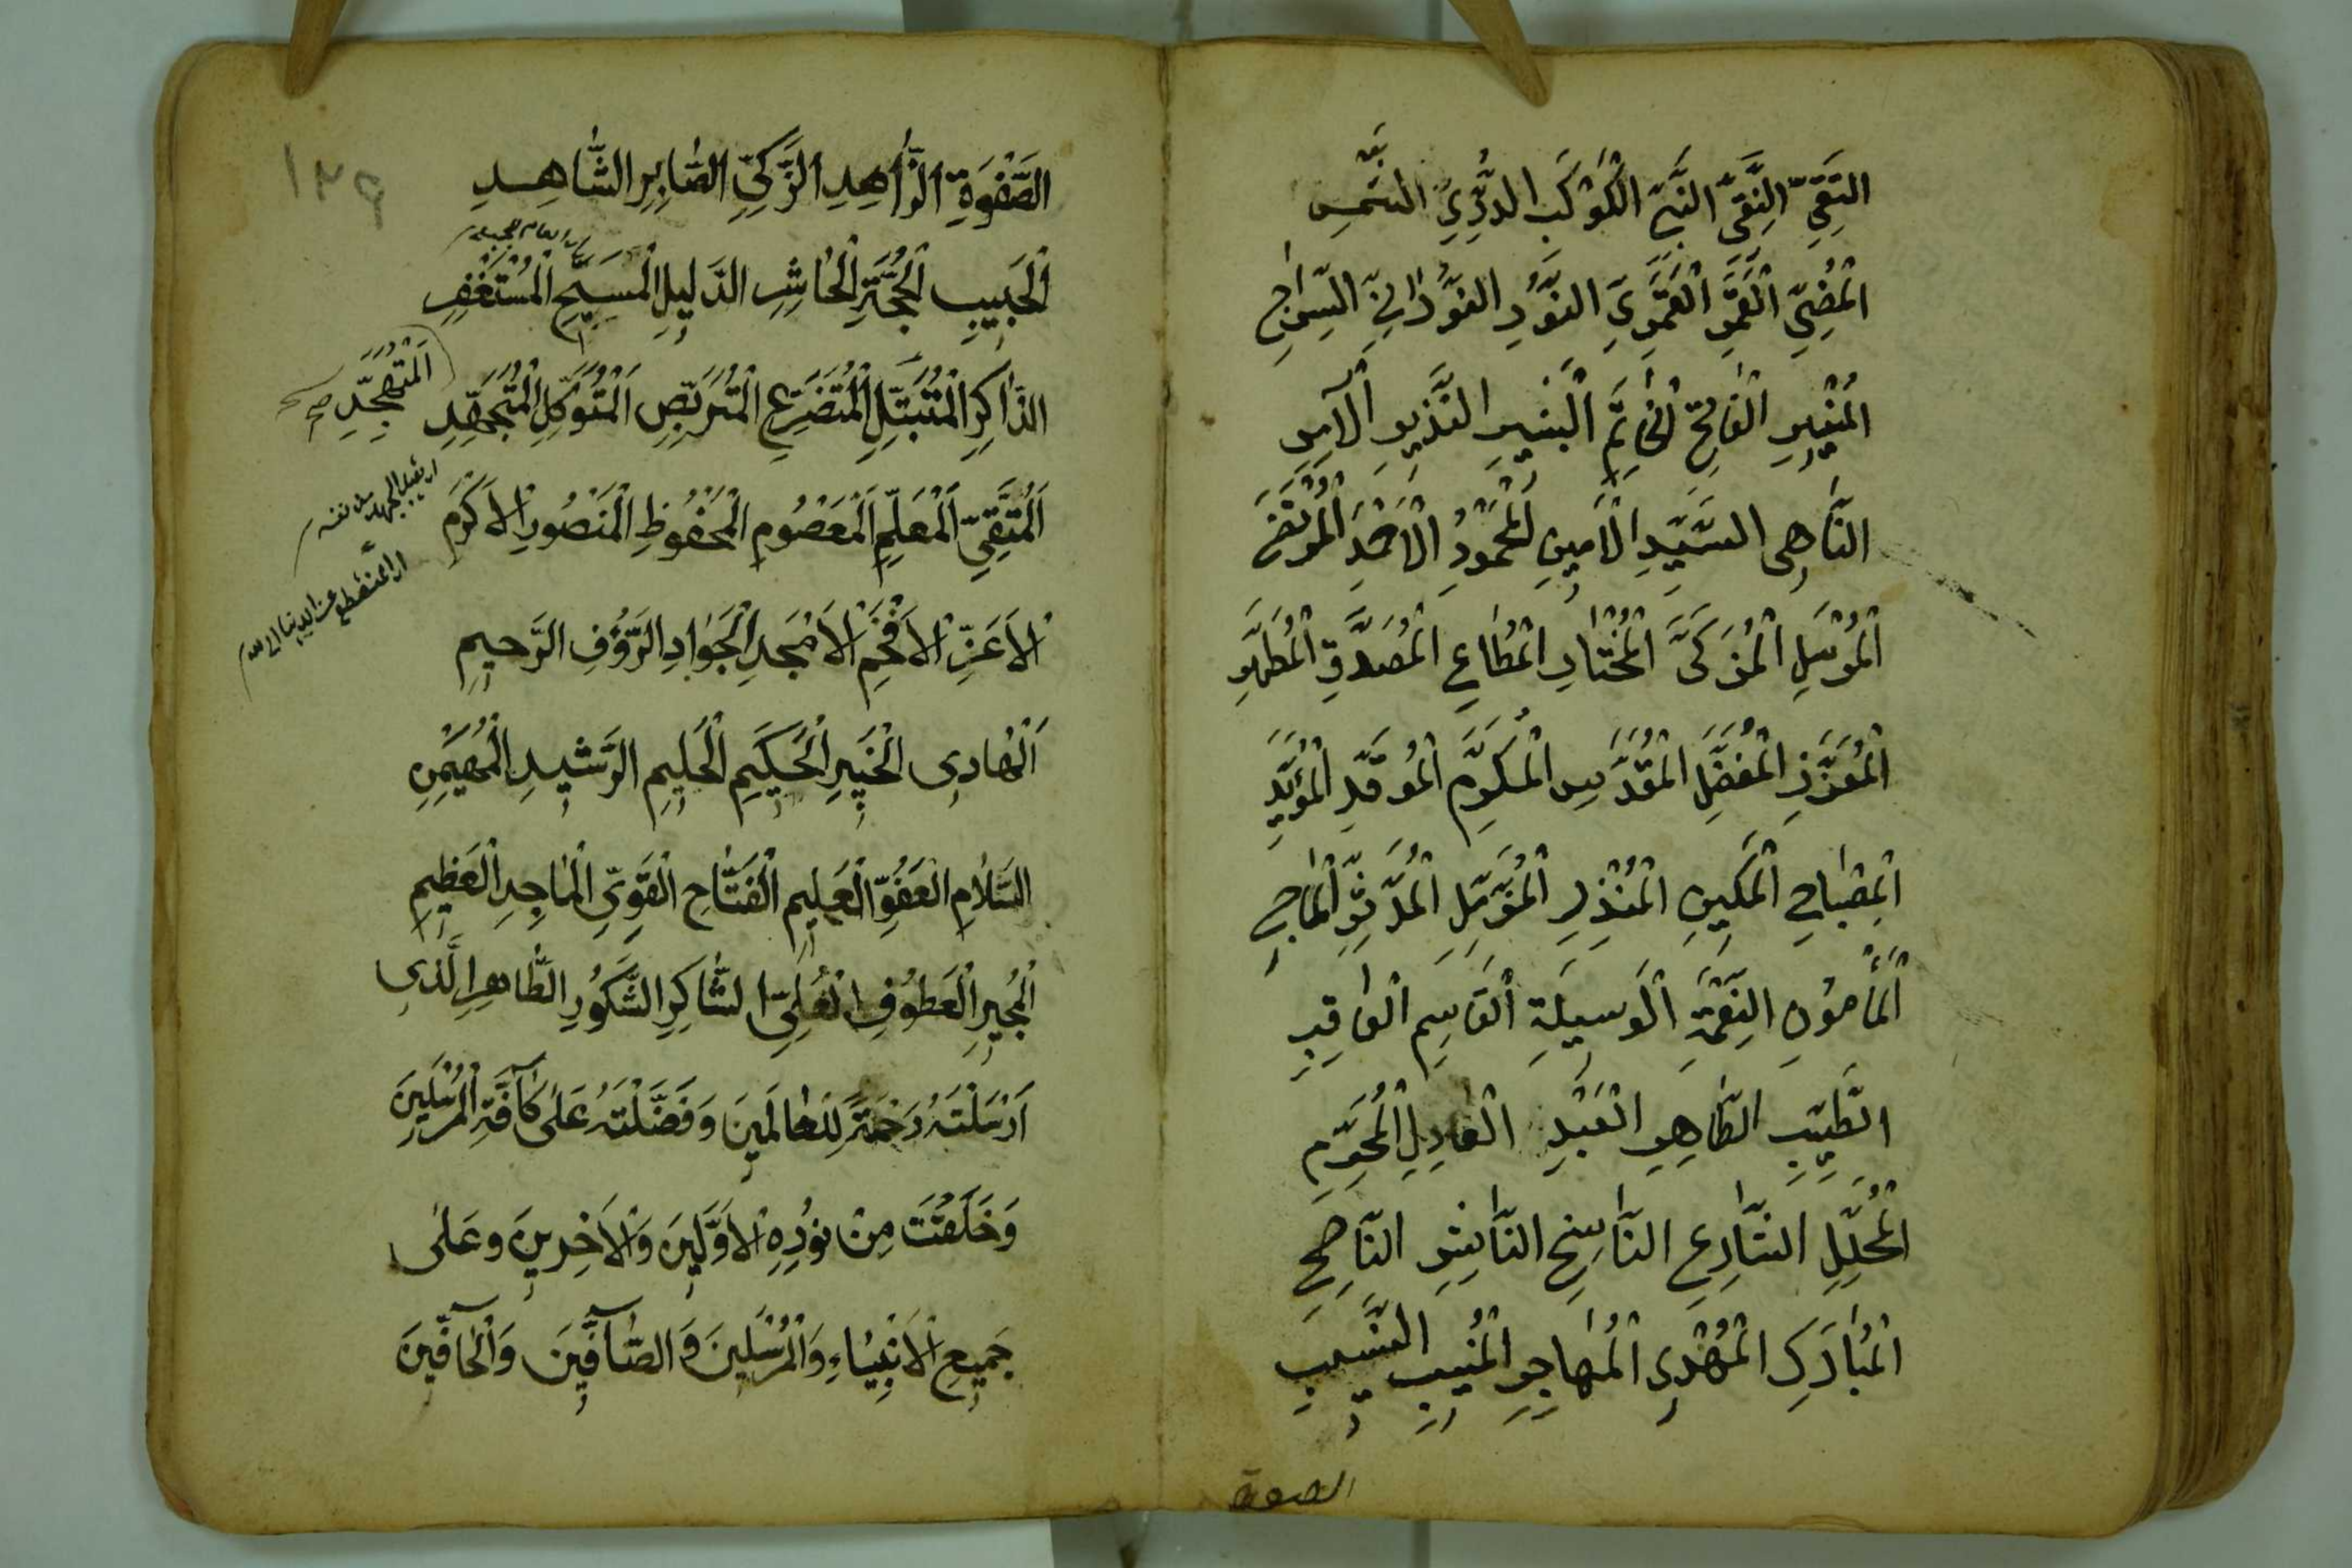 التَّقِيِّ النَّقِيِّ النَّبِيِّ الْكَوْكَبِ الدُّرِّيِّ الشَّمْسِ
الْمُضِيِّ الْقَمَرِ الْقَمَرِيِّ النُّورِ النُّورَانِيِّ السِّرَاجِ
الْمُنِيرِ الْفَاتِحِ الْخَاتِمِ الْبَشِيرِ النَّذِيرِ الْآمِرِ
النَّاهِي السَّيِّدِ الْأَمِينِ الْمَحْمُودِ الْأَحْمَدِ الْمُرْتَضَى
الْمُرْسَلِ الْمُزَكَّى الْمُخْتَارِ الْمُطَاعِ الْمُصَدَّقِ الْمُطَهَّرِ
الْمُعَزَّزِ الْمُفَضَّلِ الْمُقَدَّسِ الْمُكَرَّمِ الْمُوَقَّرِ الْمُؤَيَّدِ
الْمِصْبَاحِ الْمَكِينِ الْمُنْذِرِ الْمُزَّمِّلِ الْمُدَّثِّرِ الْمَاحِي
الْمَأْمُونِ النِّعْمَةِ الْوَسِيلَةِ الْقَاسِمِ الْعَاقِبِ
الطَّيِّبِ الطَّاهِرِ الْعَبْدِ الْعَادِلِ الْمُحَرِّمِ
الْمُحَلِّلِ الشَّارِعِ النَّاسِخِ النَّاشِرِ النَّاصِحِ
الْمُبَارَكِ الْمُهْدِي الْمُهَاجِرِ الْمُنِيبِ النَّسِيبِ
الصفوة
١٢٩
الصَّفْوَةِ الزَّاهِدِ الزَّكِيِّ الصَّابِرِ الشَّاهِدِ
الْحَبِيبِ الْحُجَّةِ الْحَاشِرِ الدَّلِيلِ الْمَسِيحِ الْمُسْتَغْفِرِ
الذَّاكِرِ الْمُتَبَتِّلِ الْمُتَضَرِّعِ الْمُتَرَبِّصِ الْمُتَوَكِّلِ الْمُتَجَهِّدِ
الْمُتَهَجِّدِ صح
الْمُتَّقِيِّ الْمُعَلِّمِ الْمَعْصُومِ الْمَحْفُوظِ الْمَنْصُورِ الْأَكْرَمِ
الْأَعَزِّ الْأَفْخَمِ الْأَمْجَدِ الْجَوَادِ الرَّؤُفِ الرَّحِيمِ
الْهَادِي الْخَبِيرِ الْحَكِيمِ الْحَلِيمِ الرَّشِيدِ الْمُهَيْمِنِ
السَّلَامِ الْعَفُوِّ الْعَلِيمِ الْفَتَّاحِ الْقَوِيِّ الْمَاجِدِ الْعَظِيمِ
الْمُجِيرِ الْعَطُوفِ الْعَلِيِّ الشَّاكِرِ الشَّكُورِ الطَّاهِرِ الَّذِي
اَرْسَلْتَهُ رَحْمَةً لِلْعَالَمِينَ وَفَضَّلْتَهُ عَلَى كَآفَّةِ الْمُرْسَلِينَ
وَخَلَقْتَ مِنْ نُورِهِ الْأَوَّلِينَ وَالْأَخِرِينَ وَعَلَى
جَمِيعِ الْأَنْبِيَاءِ وَالْمُرْسَلِينَ وَالصَّآفِّينَ وَالْحَآفِّينَ